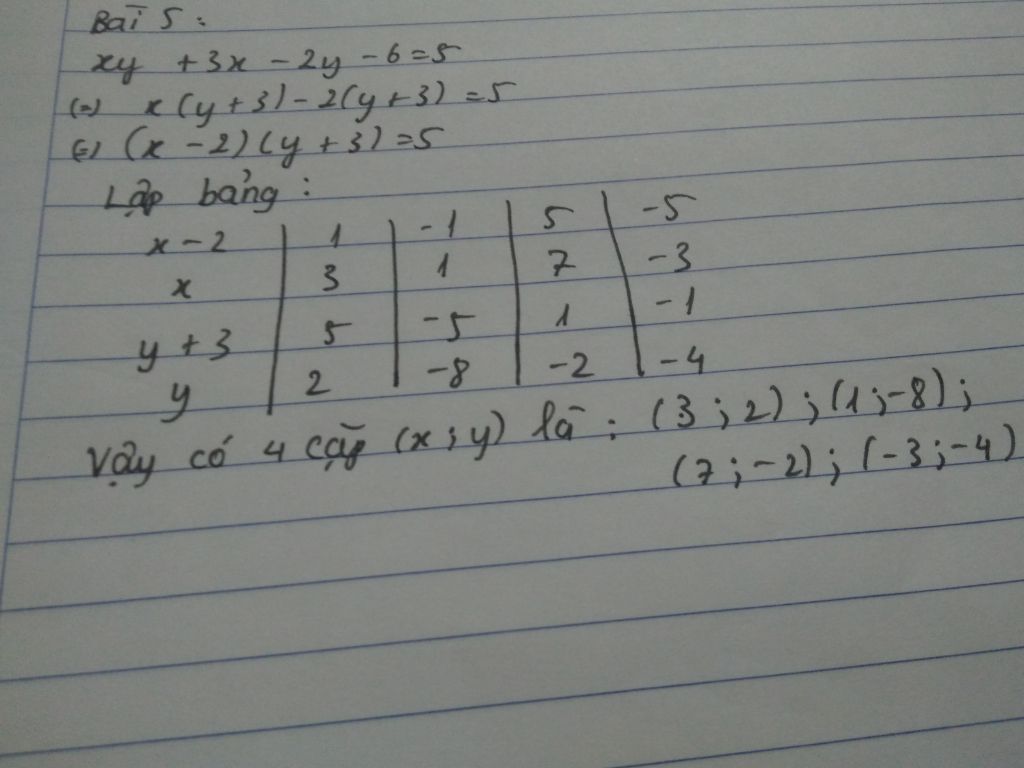 Bài 5:
xy + 3x - 2y - 6 = 5
(=) x(y + 3) - 2(y + 3) = 5
(=) (x - 2)(y + 3) = 5
Lập bảng:
x - 2 | 1 | -1 | 5 | -5
x | 3 | 1 | 7 | -3
y + 3 | 5 | -5 | 1 | -1
y | 2 | -8 | -2 | -4
Vậy có 4 cặp (x; y) là: (3; 2); (1; -8);
(7; -2); (-3; -4)